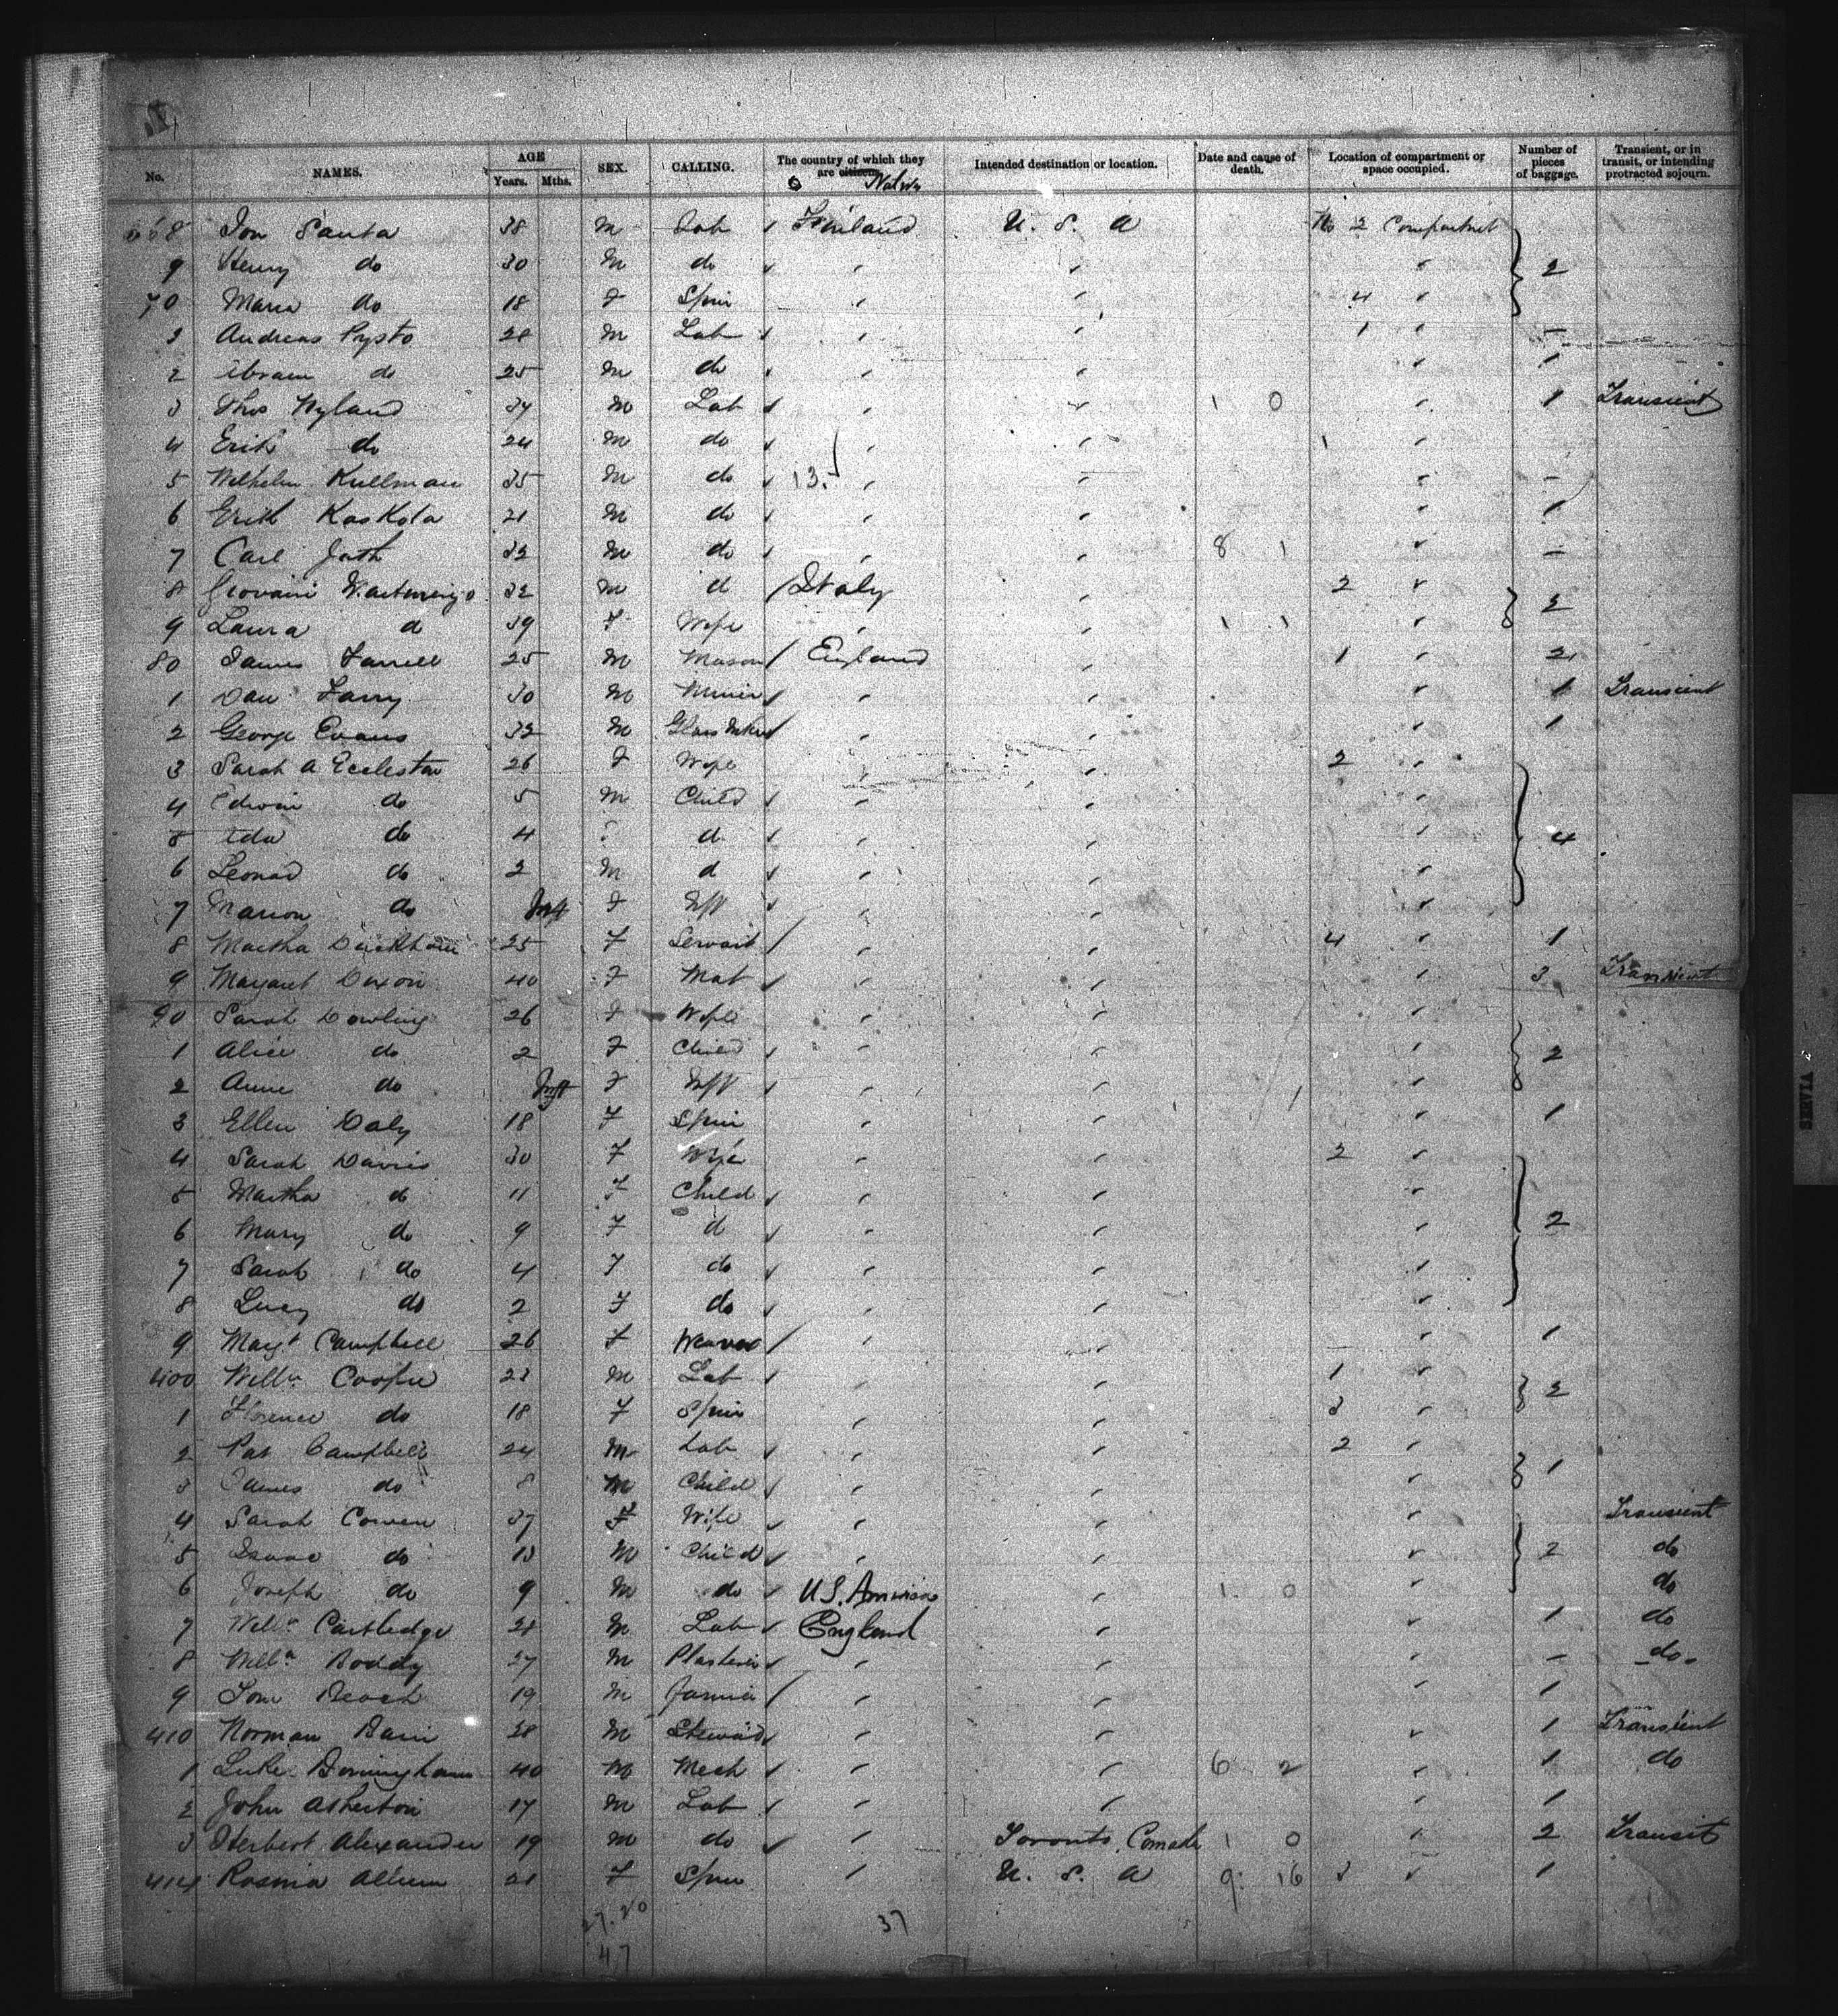 No. NAMES. AGE Years. Mths. SEX. CALLING. The country of which they are citizens. Natives Intended destination or location. Date and cause of death. Location of compartment or space occupied. Number of pieces of baggage. Transient, or in transit, or intending protracted sojourn.
368 Jon Santa 38 M Lab Finland U. S. A No 2 Compartmt
9 Henry do 30 M do " " " 2
70 Maria do 18 F Spin " " 4 "
Andreas Pysto 28 M Lab " " 1 " –
2 Abram do 25 M do " " " 1
3 Thos Nyland 34 M Lab " " 1 0 " 1 Transient
4 Erik do 24 M do " " 1 "
5 Wilhelm Kullman 35 M do 13. " " " –
6 Erik Koskola 21 M do " " " 1
7 Carl 32 M do " " 8 1 " –
8 Giovanni 32 M d Italy " 2 " 2
9 Laura d 39 F Wife " " 1 1 "
80 James Farrell 25 M Mason England " 1 " 2
1 Dan Farry 30 M Miner " " " 1 Transient
2 George Evans 32 M Glass Mkr " " " 1
3 Sarah A Eccleston 26 F Wife " " 2 "
4 Edwin do 5 M Child " " "
5 Ida do 4 d " " " 4
6 Leonard do 2 M d " " "
7 Marion do Inft F Inft " " "
8 Martha 25 F Servant " " 4 " 1
9 Margaret Dixon 40 F Mat " " " 3 Transient
90 Sarah Dowling 26 F Wife " " "
1 Alice do 2 F Child " " " 2
2 Anne do Inft F Inft " " "
3 Ellen Daly 18 F Spin " " " 1
4 Sarah Davies 30 F Wife " " 2 "
5 Martha do 11 F Child " " "
6 Mary do 9 F d " " " 2
7 Sarah do 4 F do " " "
8 Lucy do 2 F do " " "
9 Margt Campbell 26 F Weaver " " " 1
400 Willm Cooper 23 M Lab " " 1 " 2
1 Florence do 18 F Spin " " 3 "
2 Pat Campbell 24 M Lab " " 2 " 1
3 James do 8 M Child " " "
4 Sarah Cowen 37 F Wife " " " Transient
5 Isaac do 13 M Child " " " 2 do
6 Joseph do 9 M do U.S. America " 1 0 " do
7 Willm Cartledge 21 M Lab England " " 1 do
8 Willm Boddy 27 M Plasterer " " " – do
9 Tom Beach 19 M " " " 1
410 Norman Bain 28 M Steward " " " 1 Transient
1 Luke 40 M Mech " " 6 2 " 1 do
2 John Asherton 17 M Lab " " " 1
3 Herbert Alexander 19 M do " Toronto, Canada 1 0 " 2 Transit
414 Rosina 21 F Spin " U. S. A 9. 16 3 " 1
27. 20 37
47
SERVIA